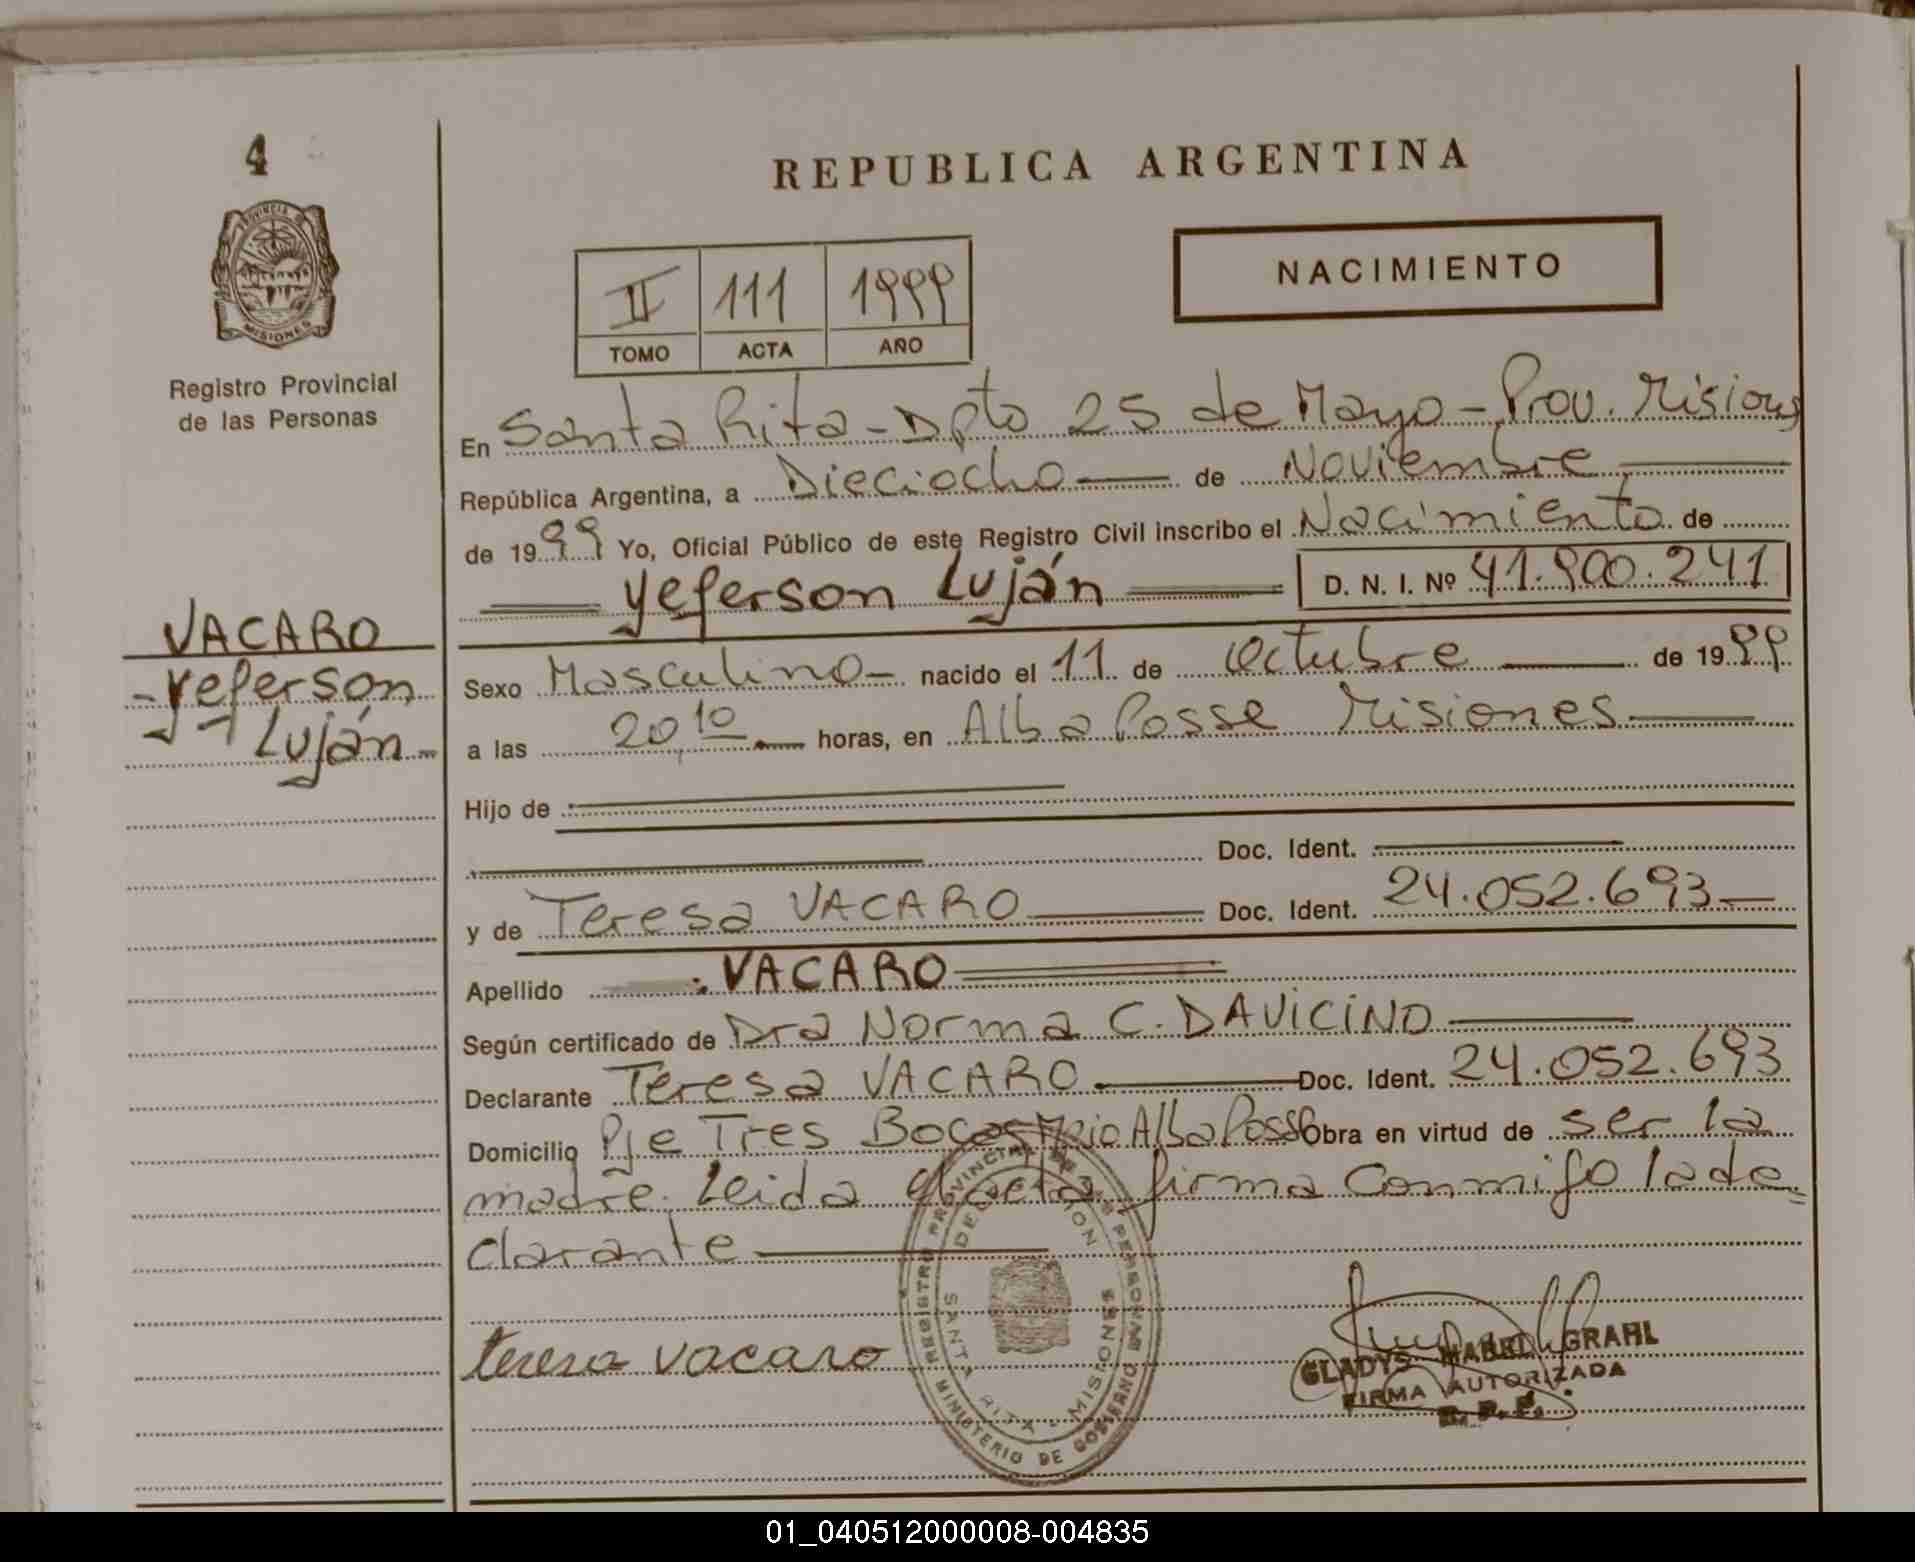 4
PROVINCIA DE
MISIONES
Registro Provincial
de las Personas
REPUBLICA ARGENTINA
II 111 1999
TOMO ACTA AÑO
NACIMIENTO
En Santa Rita - Dpto 25 de Mayo - Prov. Misiones
República Argentina, a Dieciocho de Noviembre
de 1999 Yo, Oficial Público de este Registro Civil inscribo el Nacimiento de
Yeferson Luján D. N. I. Nº 41.900.241
VACARO
- Yeferson
Luján -
Sexo Masculino - nacido el 11 de Octubre de 1999
a las 20,10 horas, en Alba Posse Misiones
Hijo de
Doc. Ident.
y de Teresa VACARO Doc. Ident. 24.052.693
Apellido : VACARO
Según certificado de Dra Norma C. DAVICINO
Declarante Teresa VACARO Doc. Ident. 24.052.693
Domicilio Pje Tres Bocas Mpio Alba Posse Obra en virtud de ser la
madre. Leida el acta firma conmigo la de=
clarante
teresa vacaro
REGISTRO PROVINCIAL DE LAS PERSONAS
MINISTERIO DE GOBIERNO
SANTA RITA - MISIONES
GLADYS MABEL GRAHL
FIRMA AUTORIZADA
R. P. P.
01_040512000008-004835